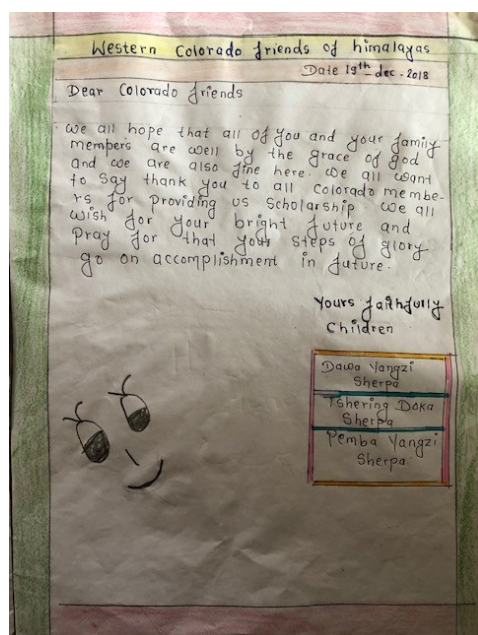 Western Colorado friends of himalayas
Date 19th-dec-2018
Dear Colorado friends
we all hope that all of you and your family
members are well by the grace of god
and we are also fine here. we all want
to say thank you to all Colorado membe-
rs for providing us scholarship. we all
wish for your bright future and
pray for that your steps of glory
go on accomplishment in future.
Yours faithfully
Children
Dawa Yangzi
Sherpa
Tshering Doka
Sherpa
Pemba Yangzi
Sherpa